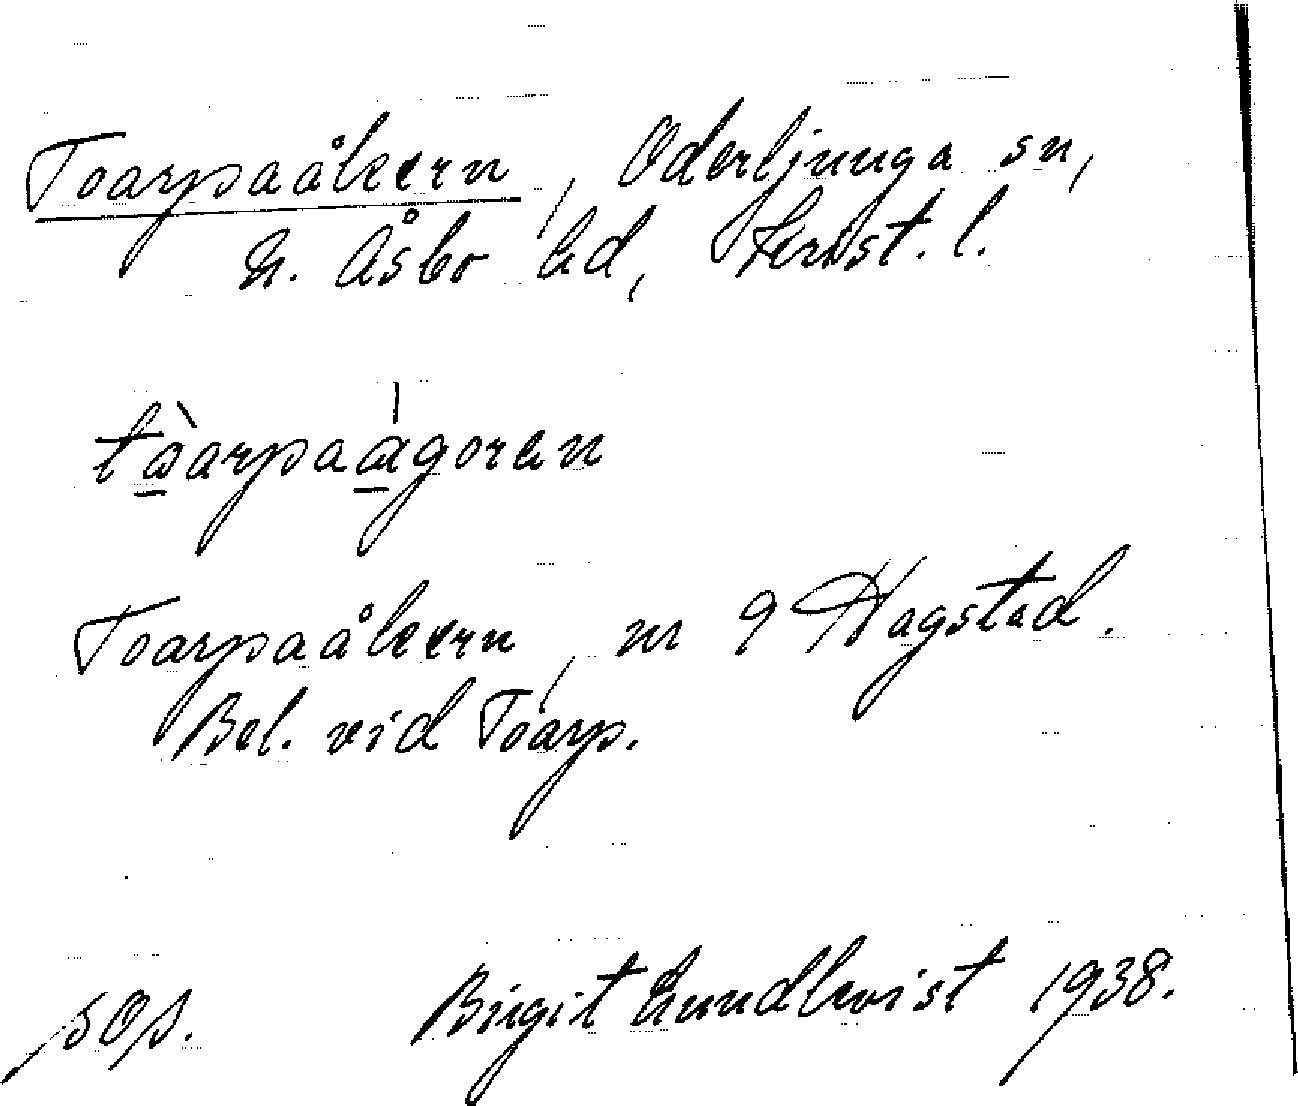 Toarpaåkern, Oderljunga sn,
N. Åsbo hd, Krist. l.
tòarpaágoran
Toarpaåkern, nr 9 Hagstad.
Bel. vid Toarp.
sOp. Birgit Lundkvist 1938.